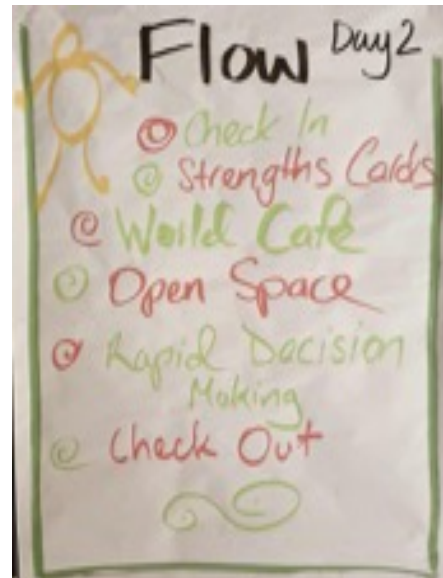 Flow Day 2
Check In
Strengths Cards
World Café
Open Space
Rapid Decision
Making
Check Out